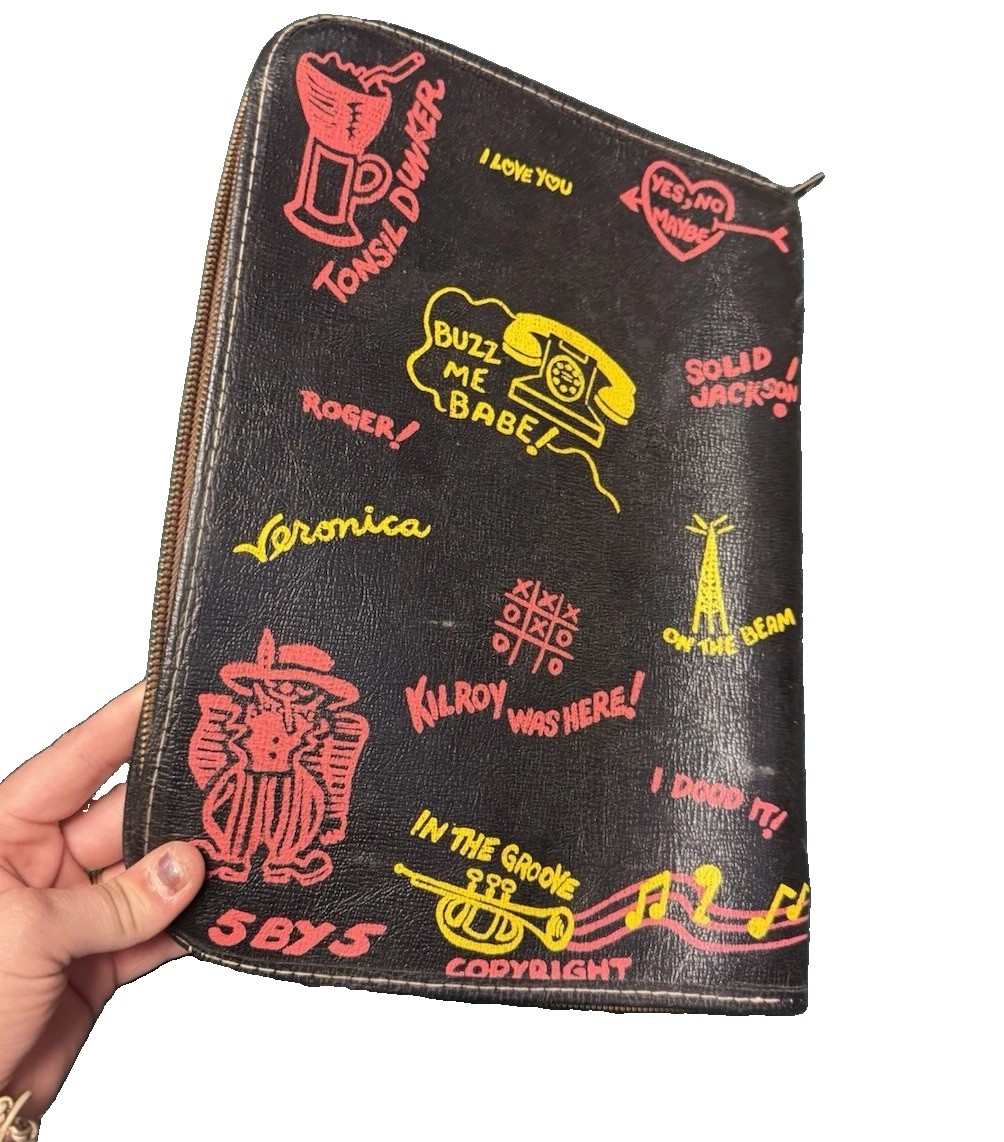 TONSIL DUNKER
I LOVE YOU
YES, NO
MAYBE
BUZZ
ME
BABE!
SOLID !
JACKSON!
ROGER!
Veronica
X X X
O X O
O O
ON THE BEAM
KILROY WAS HERE!
I DOOD IT!
IN THE GROOVE
5 BY 5
COPYRIGHT